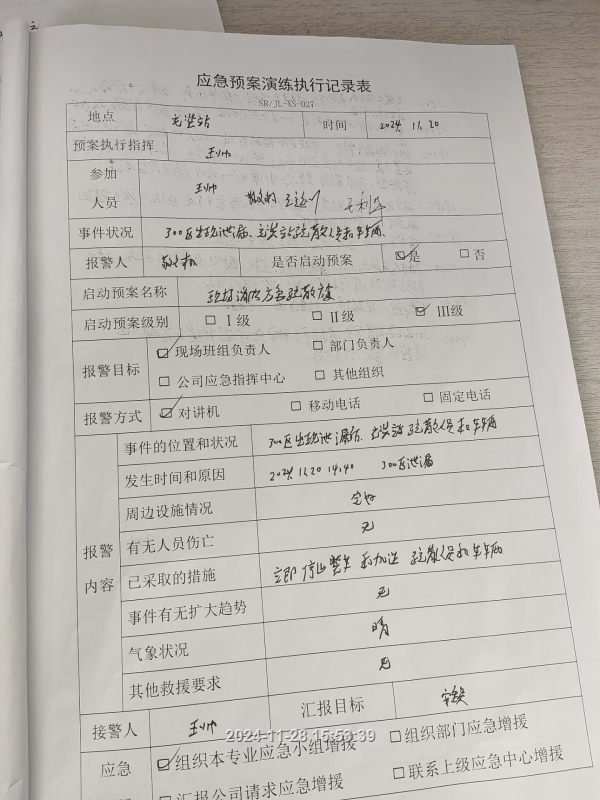 应急预案演练执行记录表
SR/JL-XS-027
地点 充装站 时间 2024.11.20
预案执行指挥 王帅
参加人员 王帅
事件状况 300区出现泄漏、充装站疏散人员和车辆.
报警人 是否启动预案 ☑是 □否
启动预案名称 现场 疏散
启动预案级别 □ I级 □ II级 ☑ III级
报警目标 ☑现场班组负责人 □ 部门负责人
□ 公司应急指挥中心 □ 其他组织
报警方式 ☑对讲机 □ 移动电话 □ 固定电话
报警内容
事件的位置和状况 300区出现泄漏、充装站 疏散人员和车辆
发生时间和原因 2024.11.20 14:40 300区泄漏
周边设施情况 完好
有无人员伤亡 无
已采取的措施 立即停止 疏散人员和车辆
事件有无扩大趋势 无
气象状况 晴
其他救援要求 无
接警人 王帅 汇报目标
2024-11-28 15:53:39
应急 ☑组织本专业应急小组增援 □组织部门应急增援
□汇报公司请求应急增援 □联系上级应急中心增援